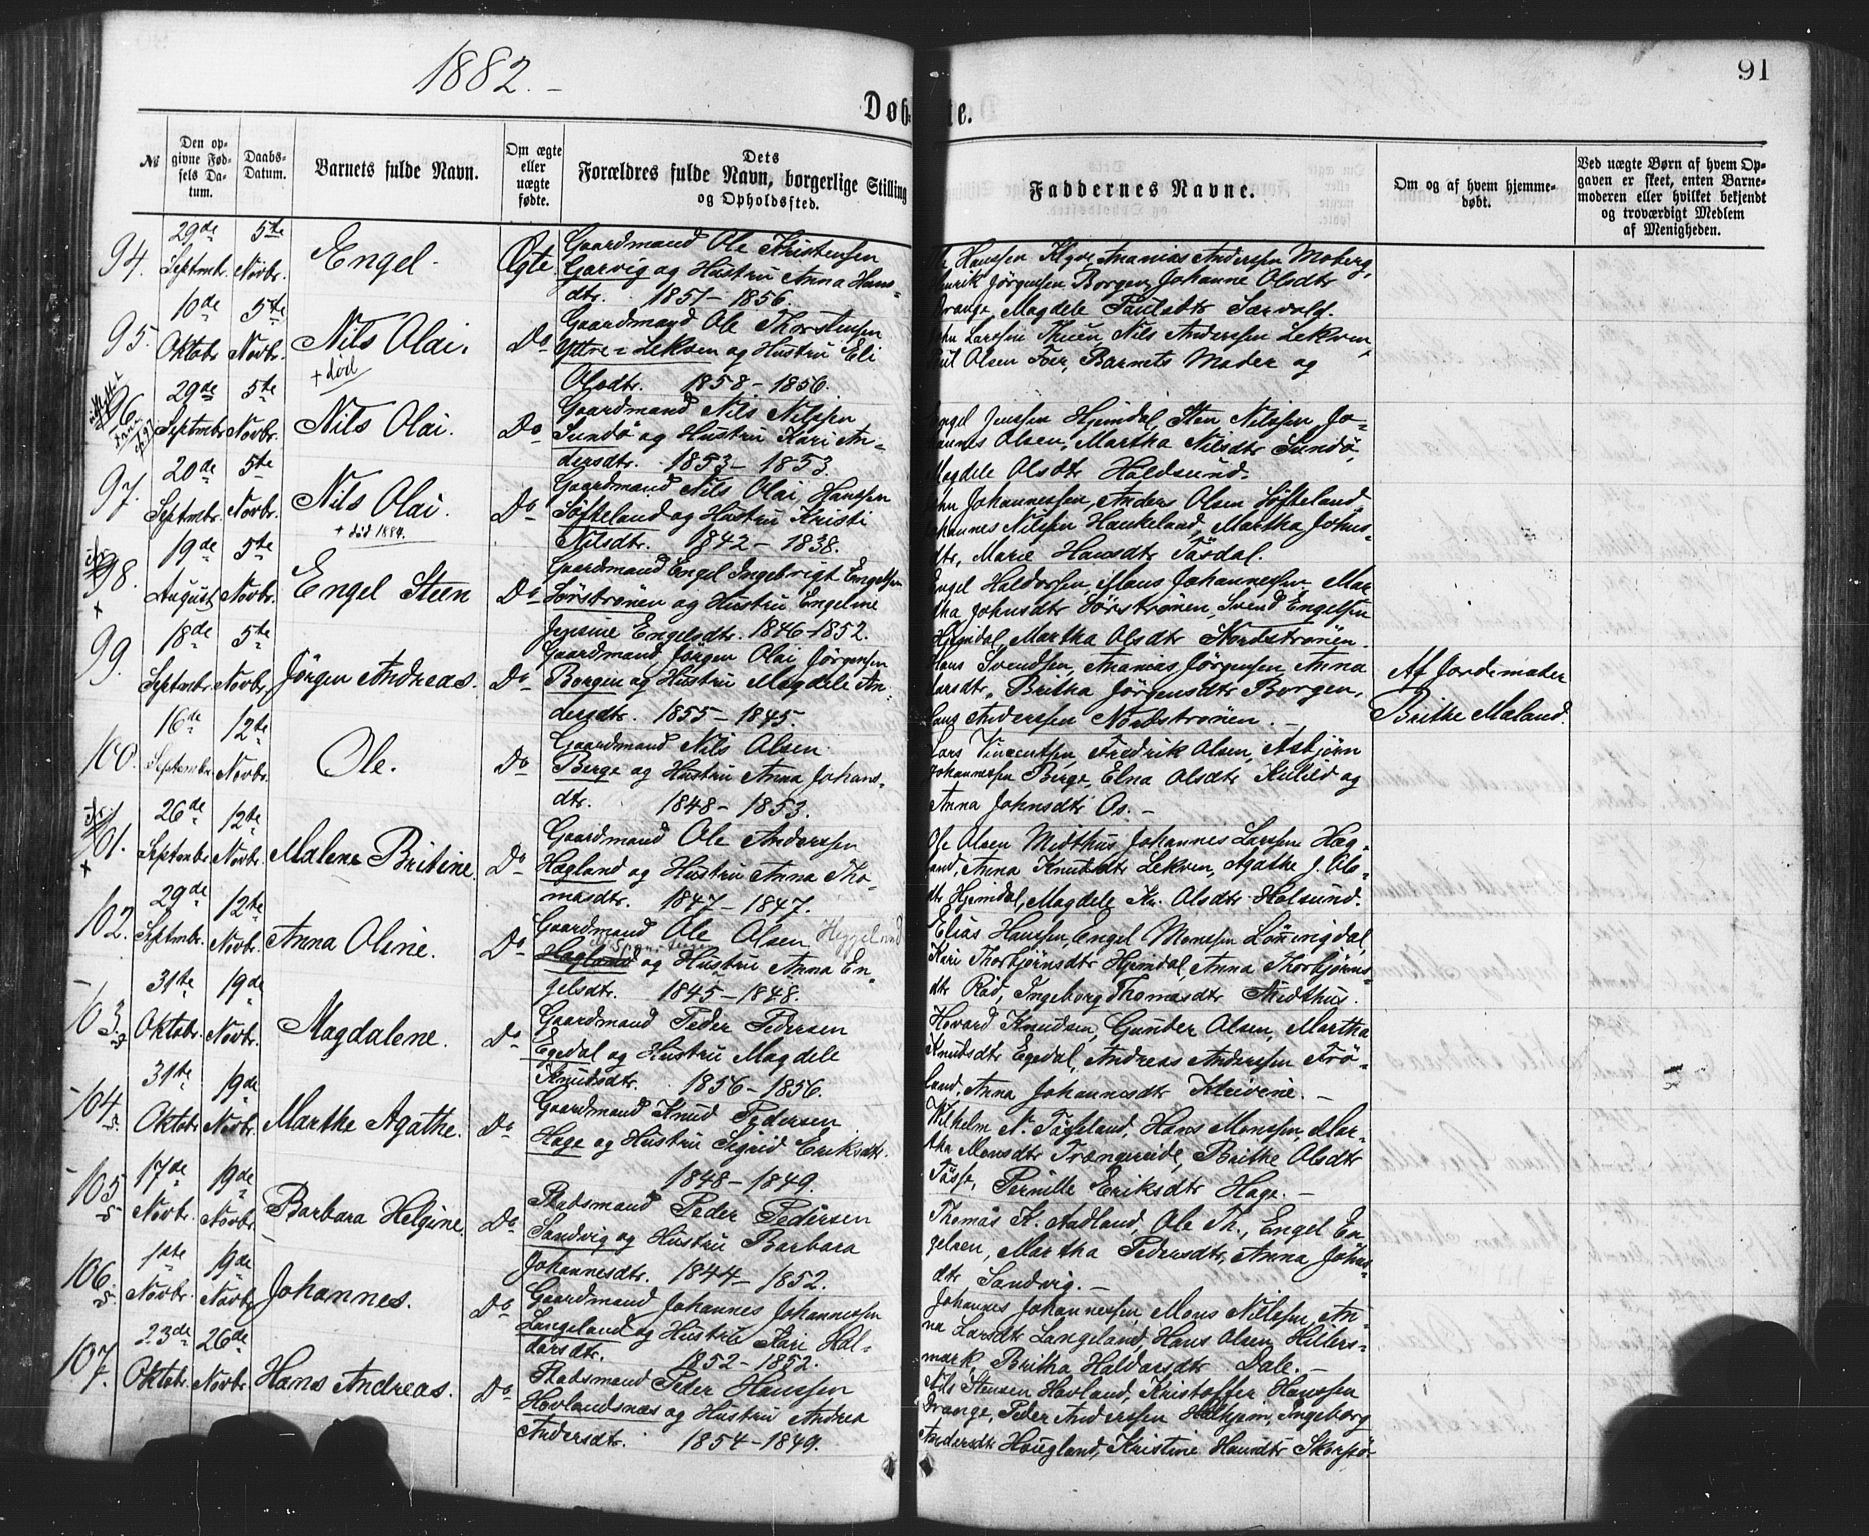 1882.
91
Døbte.
№
Den opgivne Fødsels Datum.
Daabs-Datum.
Barnets fulde Navn.
Om ægte eller uægte fødte.
Dets Forældres fulde Navn, borgerlige Stilling og Opholdssted.
Faddernes Navne.
Om og af hvem hjemmedøbt.
Ved uægte Børn af hvem Opgaven er skeet, enten Barnemoderen eller hvilket bekjendt og troværdigt Medlem af Menigheden.
94. 29de Septmbr. 5te Novbr. Engel. Ægte
Gaardmand Ole Kristensen
Gjervig og Hustru Anna Hans-
dtr. 1851 - 1856.
Hanssen Klyve, Ananias Anderssen Moberg,
Henrik Jörgensen Borgen, Johanne Olsdtr
Drange, Magdele Paulsdtr Sævold.
95. 10de Oktobr 5te Novbr. Nils Olai. Do
+ död
Gaardmand Ole Thorstensen
Yttre-Lekven og Hustru Eli
Olsdtr. 1858 - 1856.
John Larssen Tuen, Nils Anderssen Lekven,
Olsen Foer, Barnets Moder og
96. 29de Septmbr 5te Novbr. Nils Olai. Do
Gaardmand Nils Nilssen
Sundö og Hustru Kari An-
dersdtr. 1853 - 1853.
Engel Jenssen Hjemdal, Sten Nilssen, Jo-
hannes Olsen, Martha Nilsdtr Sundö,
Magdele Olsdtr Holdsund.
97. 20de Septmbr. 5te Novbr. Nils Olai. Do
+ död 1884.
Gaardmand Nils Olai Hanssen
Söfteland og Hustru Kristi
Nilsdtr. 1842 - 1838.
John Johannessen, Anders Olsen Söfteland,
Johannes Nilssen Haukeland, Martha Johns-
dtr, Marie Hansdtr Tösdal.
98. 19de August 5te Novbr. Engel Steen Do
Gaardmand Engel Ingebrigt Engelsen
Sörströnen og Hustru Engeline
Jensine Engelsdtr. 1846 - 1852.
Engel Haldorsen, Mons Johannessen, Mar-
tha Johnsdtr Sörströnen, Svend Engelsen
Hjemdal, Martha Olsdtr Nordströnen.
99. 18de Septmbr. 5te Novbr. Jörgen Andreas. Do
Gaardmand Jörgen Olai Jörgensen
Borgen og Hustru Magdele An-
dersdtr. 1855 - 1845.
Hans Svendsen, Ananias Jörgensen, Anna
Larsdtr, Britha Jörgensdtr Borgen,
Lars Anderssen Nordströnen. -
Af Jordemoder
Brithe Maland.
100. 16de Septembr. 12te Novbr. Ole. Do
Gaardmand Nils Olsen
Berge og Hustru Anna Johans-
dtr. 1848 - 1853.
Lars Vincentsen, Fredrik Olsen, Asbjörn
Johannessen Berge, Elna Olsdtr Kulild og
Anna Johnsdtr Os. -
101. 26de Septembr. 12te Novbr. Malene Britine. Do
Gaardmand Ole Anderssen
Hægland og Hustru Anna Tho-
masdtr. 1847 - 1847.
Ole Olsen Midthus, Johannes Larssen Hæg-
land, Anna Knudsdtr Lekven, Agathe J. Ols-
dtr Hjemdal, Magdele Kn. Olsdtr Holsund.
102. 29de Septmbr. 12te Novbr. Anna Oline. Do
Gaardmand Ole Olsen Heggelund
Hægland og Hustru Anna En-
gelsdtr. 1845 - 1848.
Elias Hanssen, Engel Monssen Lönningdal,
Kari Thorbjörnsdtr Hjemdal, Anna Thorbjörns-
dtr Röd, Ingeborg Thomasdtr Midthus.
103. 31te Oktobr. 19de Novbr. Magdalene. Do
Gaardmand Peder Pedersen
Egedal og Hustru Magdele
Knudsdtr. 1856 - 1856.
Hovard Knudsen, Gunder Olsen, Martha
Knudsdtr Egedal, Andreas Anderssen Frö-
land, Anna Johannesdtr Kleivene. -
104. 31te Oktobr. 19de Novbr. Marthe Agathe. Do
Gaardmand Knud Pedersen
Hage og Hustru Sigrid Eriksdtr.
1848 - 1849.
Wilhelm N. Töseland, Hans Monssen, Mar-
tha Monsdtr Trængereide, Brithe Olsdtr
Tösse, Pernille Eriksdtr Hage. -
105. 17de Novbr. 19de Novbr. Barbara Helgine. Do
Pladsmand Peder Pedersen
Sandvig og Hustru Barbara
Johannesdtr. 1844 - 1852.
Thomas K. Aadland, Ole Th., Engel En-
gelsen, Martha Pedersdtr, Anna Johns-
dtr Sandvig. -
106. 1ste Novbr. 19de Novbr. Johannes. Do
Gaardmand Johannes Johannessen
Langeland og Hustru Kari Hal-
dorsdtr. 1852 - 1852.
Johannes Johannessen, Mons Nilssen, An-
na Larsdtr Langeland, Hans Olsen Hillers-
mark, Britha Haldorsdtr Dale. -
107. 23de Oktobr. 26de Novbr. Hans Andreas. Do
Pladsmand Peder Hanssen
Hovlandsnæs og Hustru Andrea
Andersdtr. 1854 - 1849.
Nils Stensen Hovland, Kristoffer Hanssen
Drange, Peder Anderssen Halhjem, Ingeborg
Andersdtr Hougland, Kristine Hansdtr Skorpö.